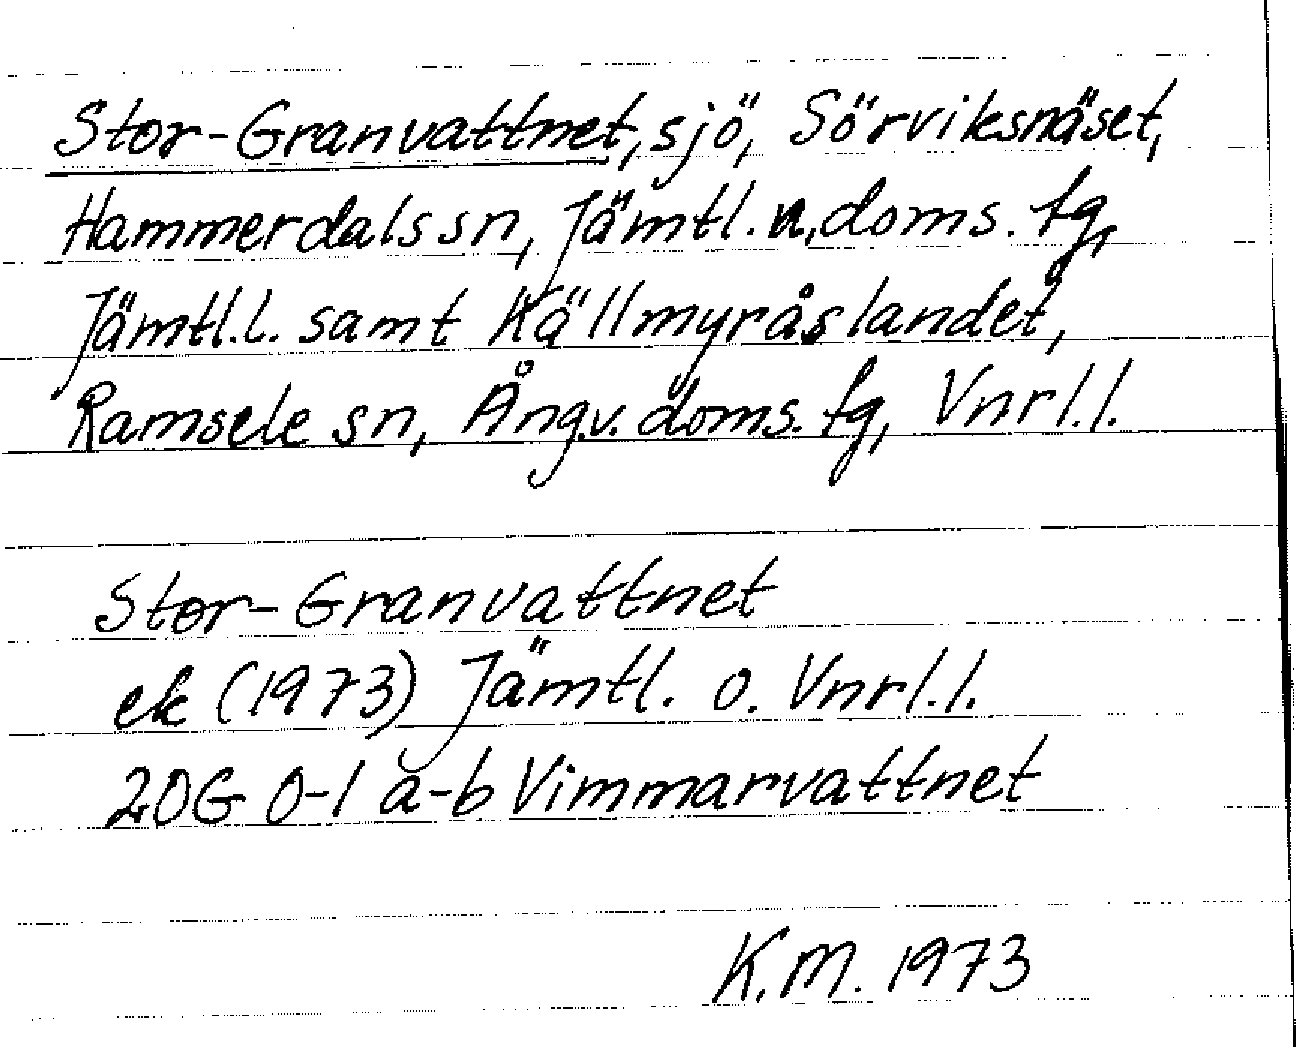 Stor-Granvattnet, sjö, Sörviksnäset,
Hammerdals sn, Jämtl. n. doms. fg,
Jämtl. l. samt Källmyråslandet,
Ramsele sn, Ång.v. doms. fg, Vnrl. l.
Stor-Granvattnet
ek (1973) Jämtl. o. Vnrl. l.
20G 0-1 a-b Vimmarvattnet
K.M. 1973